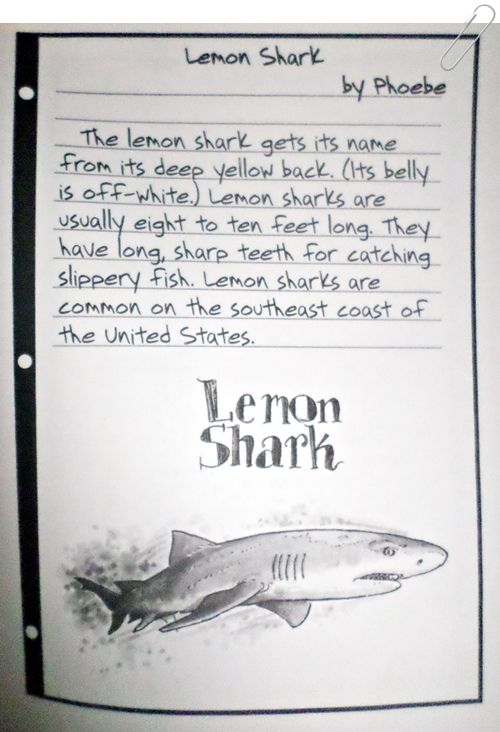 Lemon Shark
by Phoebe
The lemon shark gets its name
from its deep yellow back. (Its belly
is off-white.) Lemon sharks are
usually eight to ten feet long. They
have long, sharp teeth for catching
slippery fish. Lemon sharks are
common on the southeast coast of
the United States.
Lemon
Shark